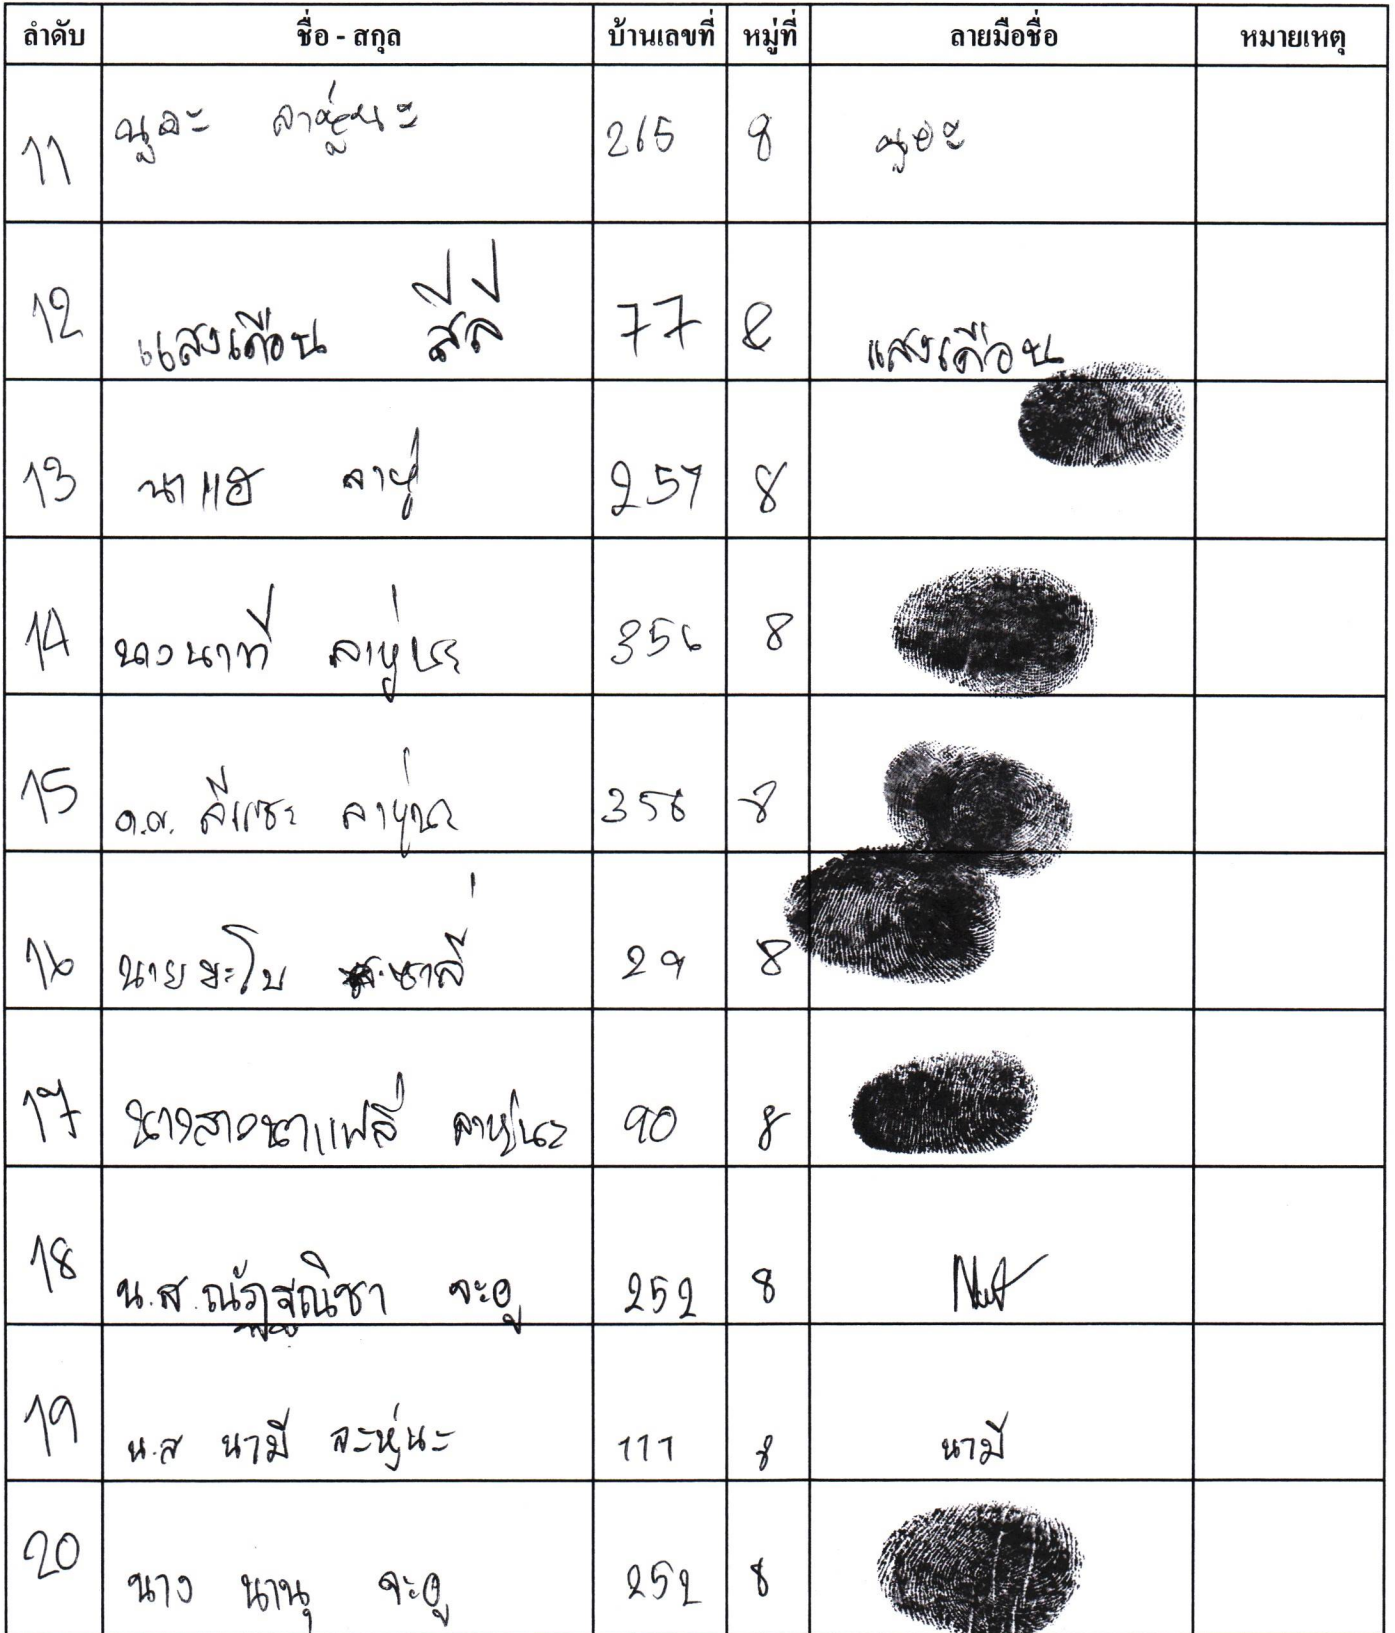 ลำดับ ชื่อ - สกุล บ้านเลขที่ หมู่ที่ ลายมือชื่อ หมายเหตุ
11 265 8
12 แสงเดือน สี่ลี่ 77 8 แสงเดือน
13 นาแฮ ลาหู่ 257 8
14 นางนาที่ ลาหู่นะ 356 8
15 ลาหู่นะ 356 8
16 นายยะโบ 29 8
17 นางสาวนาแฟลี่ ลาหู่นะ 90 8
18 น.ส. ณัฏฐณิชา จะอู 252 8 Nut
19 น.ส นามี ละหู่นะ 111 8 นามี
20 นาง นานุ จะอู 252 8